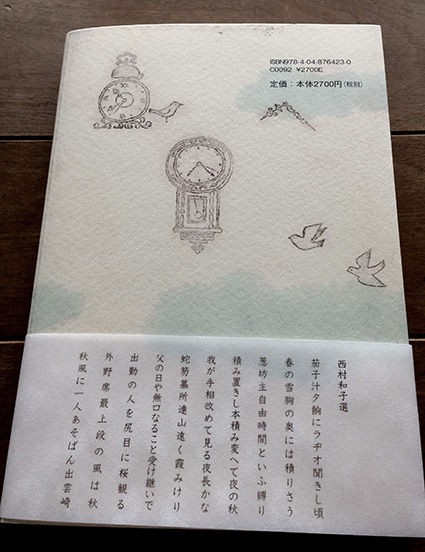 ISBN978-4-04-876423-0
C0092 ¥2700E
定価：本体2700円（税別）
西村和子選
茄子汁夕餉にラヂオ聞きし頃
春の雪胸の奥には積りさう
葱坊主自由時間といふ縛り
積み置きし本積み変へて夜の秋
我が手相改めて見る夜長かな
蛇笏墓所連山遠く霞みけり
父の日や無口なること受け継いで
出勤の人を尻目に桜観る
外野席最上段の風は秋
秋風に一人あそばん出雲崎